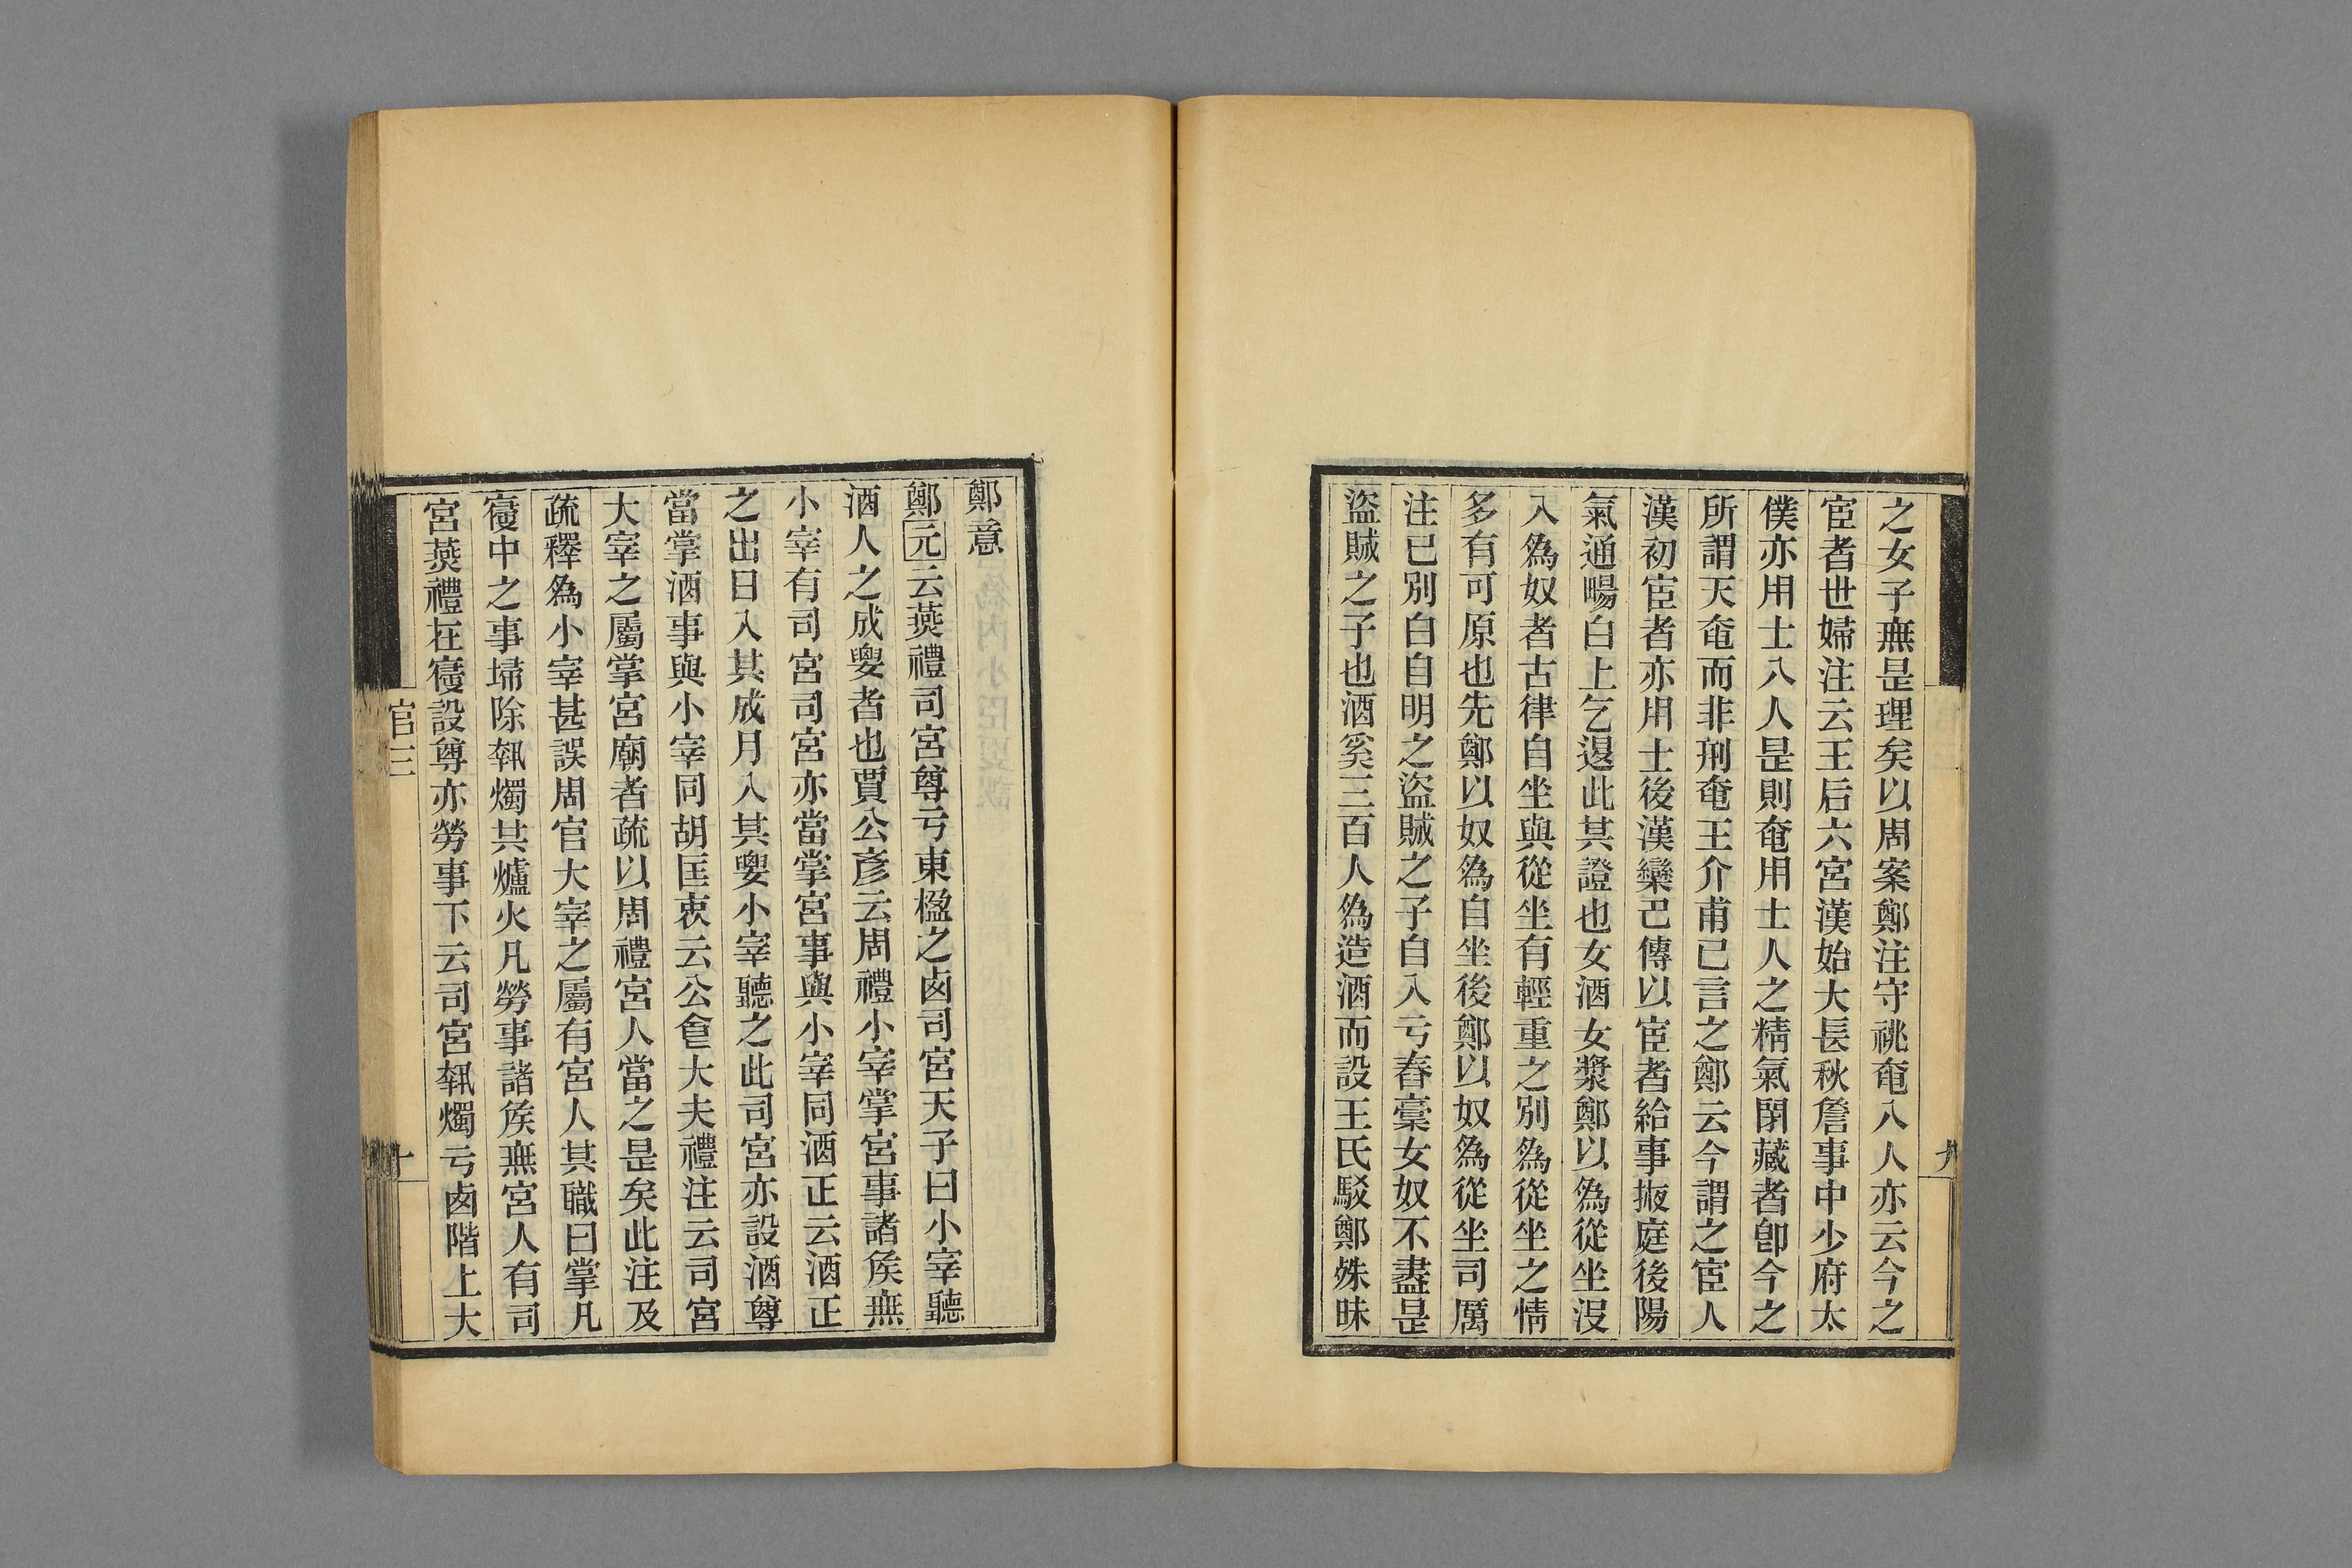 之女子無是理矣以周案鄭注守祧奄八人亦云今之
宦者世婦注云王后六宮漢始大長秋詹事中少府太
僕亦用士八人是則奄用士人之精氣閉藏者卽今之
所謂天奄而非刑奄王介甫已言之鄭云今謂之宦人
漢初宦者亦用士後漢欒巴傳以宦者給事掖庭後陽
氣通暢白上乞退此其證也女酒女漿鄭以為從坐沒
入為奴者古律自坐與從坐有輕重之別為從坐之情
多有可原也先鄭以奴為自坐後鄭以奴為從坐司厲
注已別白自明之盜賊之子自入亏舂稾女奴不盡是
盜賊之子也酒奚三百人為造酒而設王氏駁鄭殊昧
九
鄭意
鄭元云燕禮司宮尊亏東楹之㢴司宮天子曰小宰聽
酒人之成㚇者也賈公彥云周禮小宰掌宮事諸矦無
小宰有司宮司宮亦當掌宮事與小宰同酒正云酒正
之出日入其成月入其㚇小宰聽之此司宮亦設酒尊
當掌酒事與小宰同胡匡衷云公會大夫禮注云司宮
大宰之屬掌宮廟者疏以周禮宮人當之是矣此注及
疏釋為小宰甚誤周官大宰之屬有宮人其職曰掌凡
寑中之事埽除執燭共爐火凡勞事諸矦無宮人有司
宮燕禮在寑設尊亦勞事下云司宮執燭亏㢴階上大
官三
十